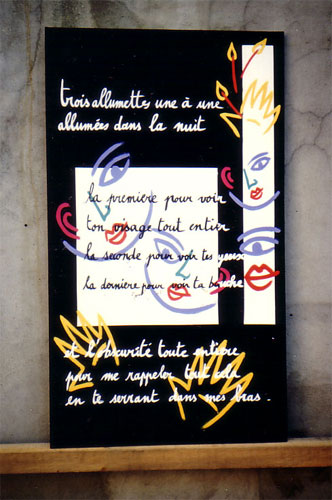 trois allumettes une à une
allumées dans la nuit
la première pour voir
ton visage tout entier
la seconde pour voir tes yeux
la dernière pour voir ta bouche
et l'obscurité toute entière
pour me rappeler tout cela
en te serrant dans mes bras.